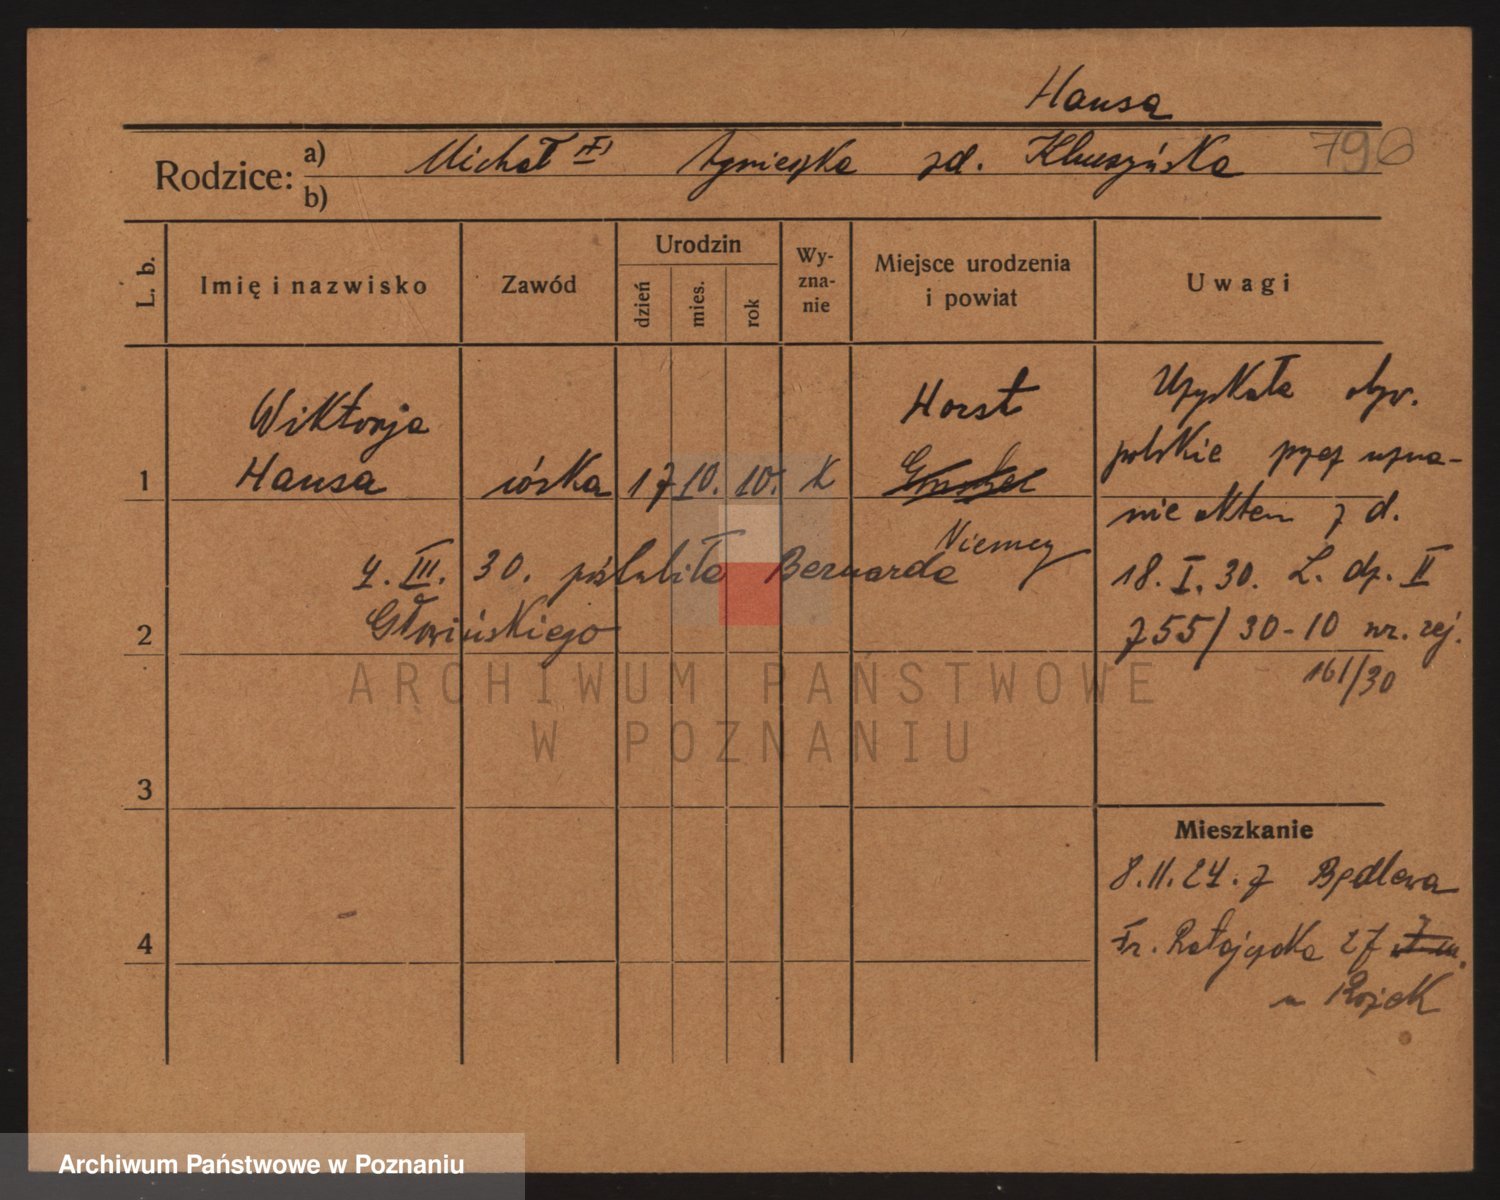 Hausa
Rodzice: a) Michał Agnieszka zd. Kluszyńska 796
b)
L. b. Imię i nazwisko Zawód Urodzin dzień mies. rok Wy-zna-nie Miejsce urodzenia i powiat Uwagi
1 Wiktorja Hausa córka 17 10. 10. K Horst
Niemcy
4. III. 30. poślubiła Bernarda
2 Głowińskiego
3
4
Uzyskała obyw.
polskie przez uzna-
nie aktem z d.
18. I. 30. L. dz. II
755/30-10 nr. rej.
161/30
Mieszkanie
8.11.24. z Będlewa
Fr. Ratajczaka 27
u Rozek
ARCHIWUM PAŃSTWOWE
W POZNANIU
Archiwum Państwowe w Poznaniu